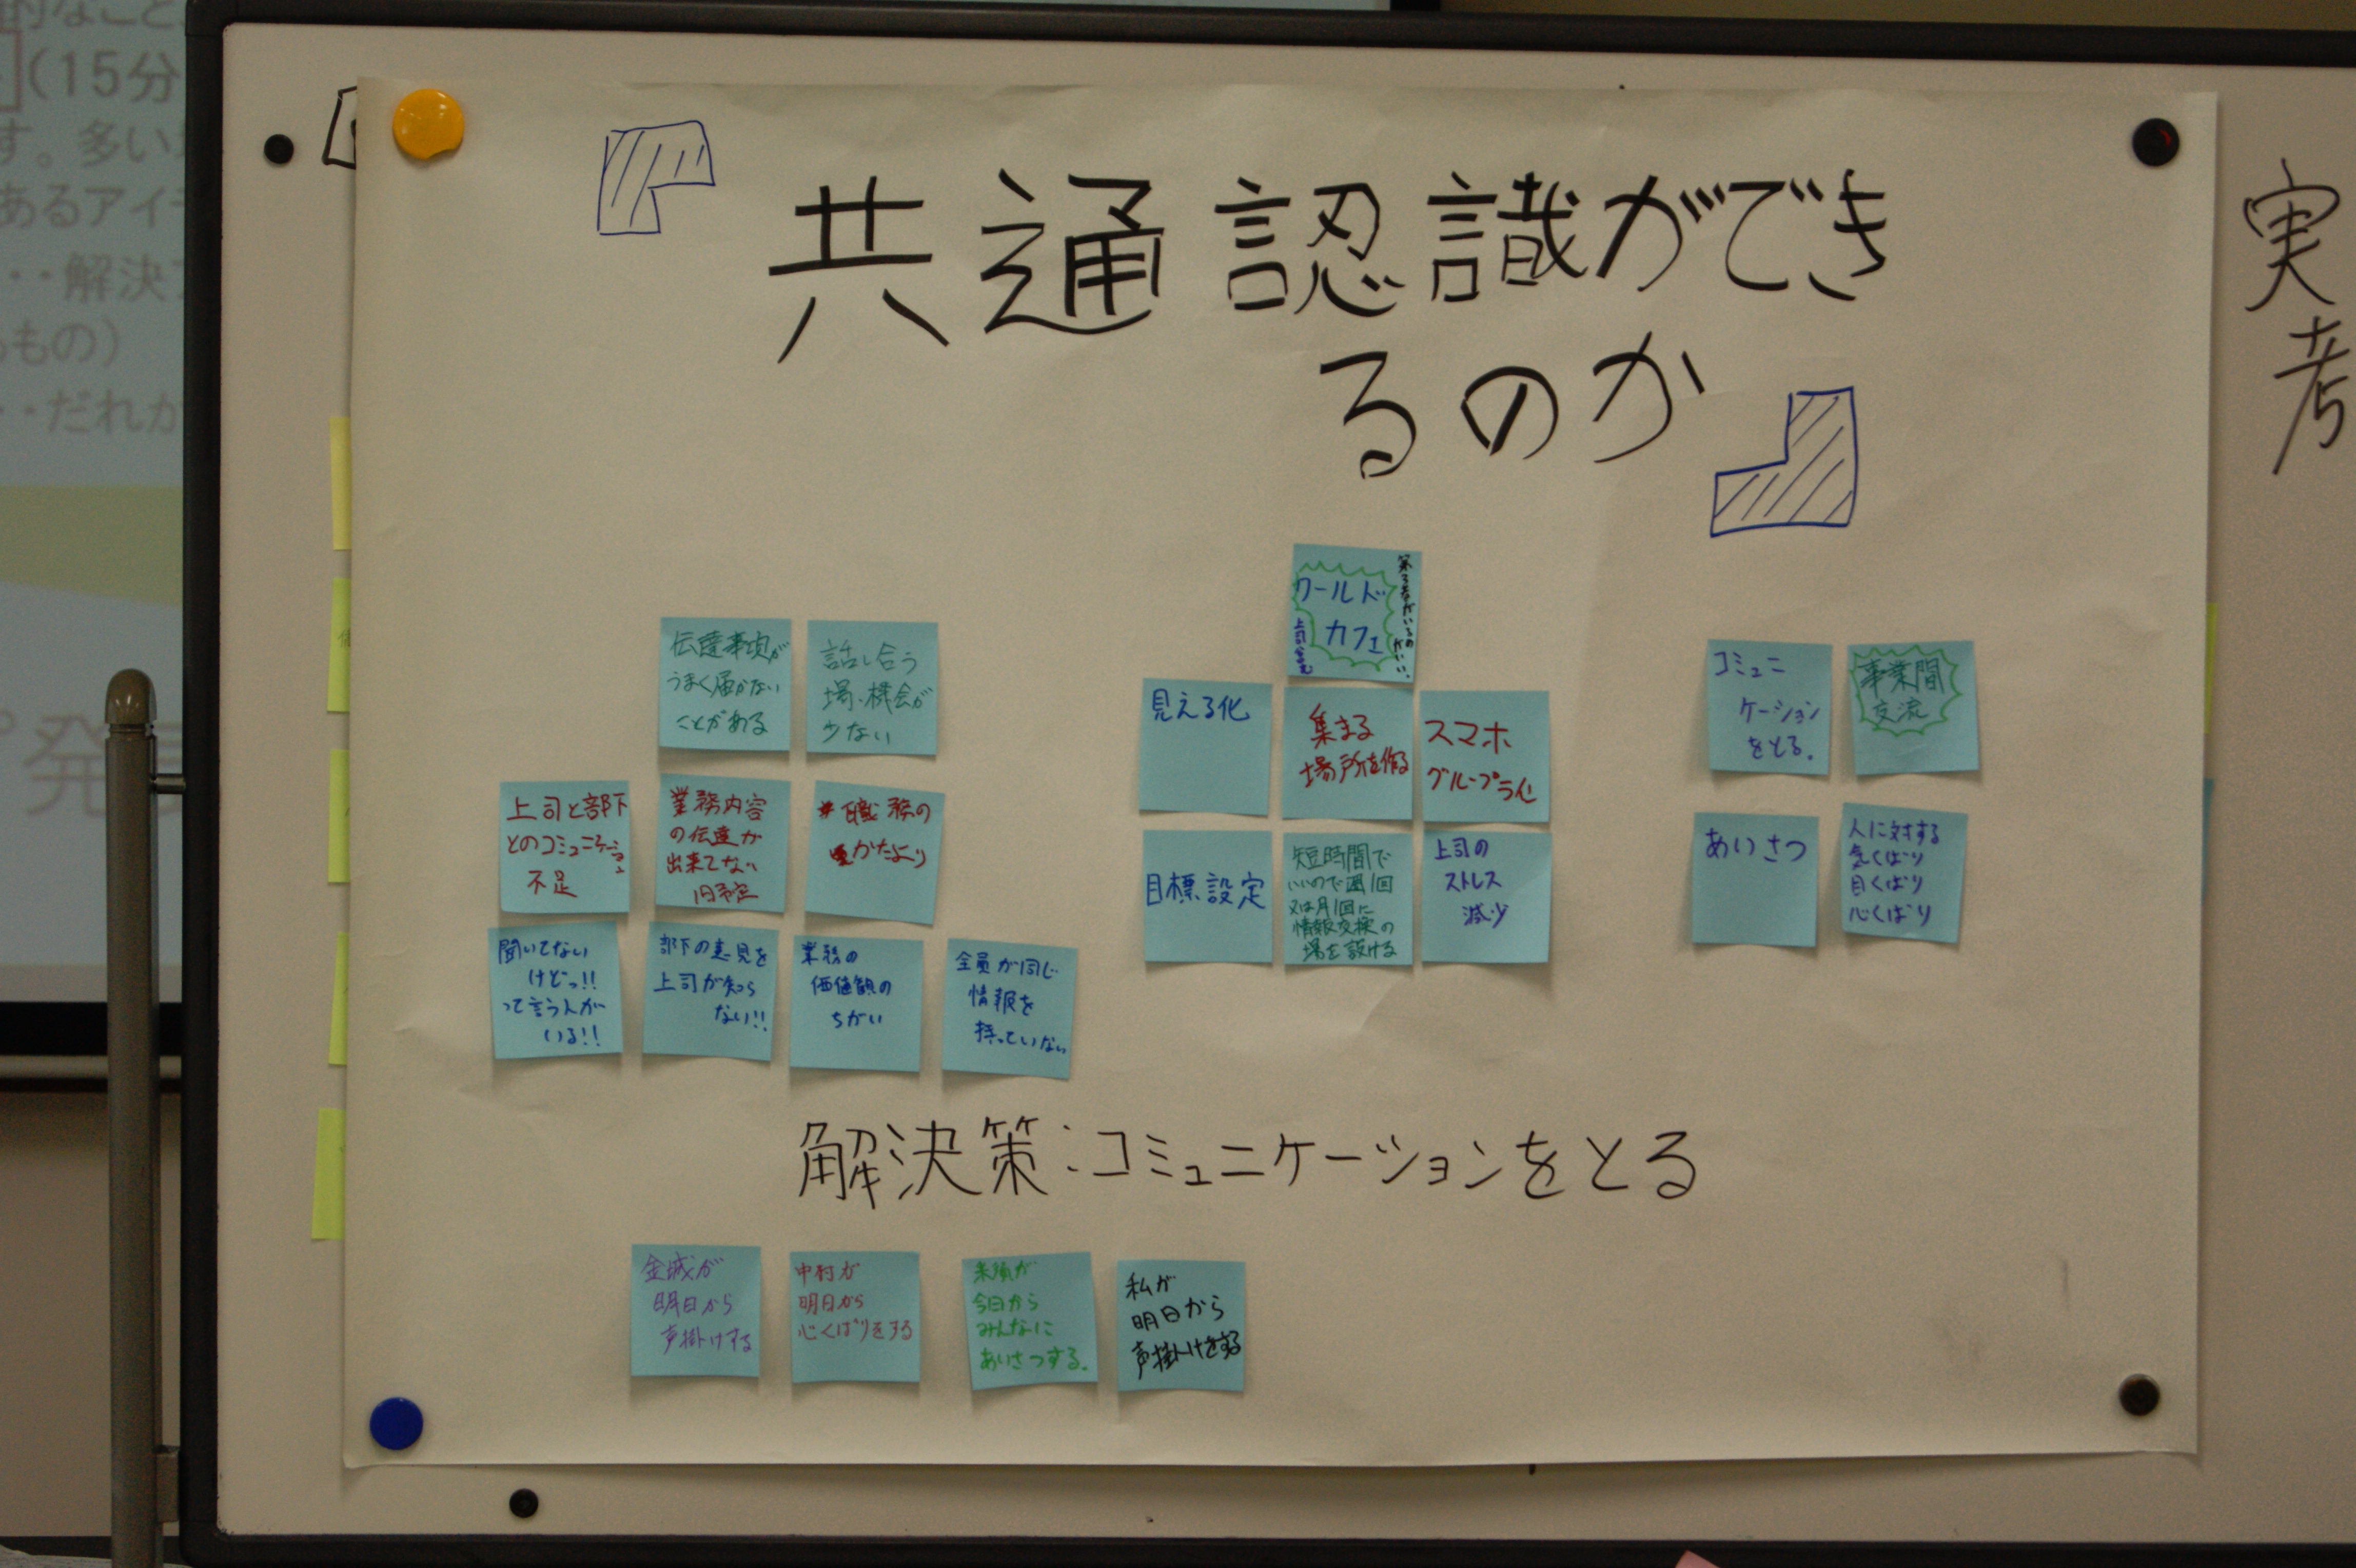 共通認識ができ
るのか
伝達事項が
うまく届かない
ことがある
話し合う
場、機会が
少ない
上司と部下
とのコミュニケーション
不足
業務内容
の伝達が
出来てない
職務の
かたより
聞いてない
けどっ!!
って言う人が
いる!!
部下の意見を
上司が知ら
ない!!
業務の
価値観の
ちがい
全員が同じ
情報を
持っていない
ワールド
カフェ
見える化
集まる
場所を作る
スマホ
グループライン
目標設定
短時間で
いいので週1回
又は月1回に
情報交換の
場を設ける
上司の
ストレス
減少
コミュニ
ケーション
をとる。
事業間
交流
あいさつ
人に対する
気くばり
目くばり
心くばり
解決策:コミュニケーションをとる
金城が
明日から
声掛けする
中村が
明日から
心くばりをする
今日から
みんなに
あいさつする。
私が
明日から
声掛けをする
実
考
(15分
す。多い
あるアイ
・・解決
もの)
・・だれか
発